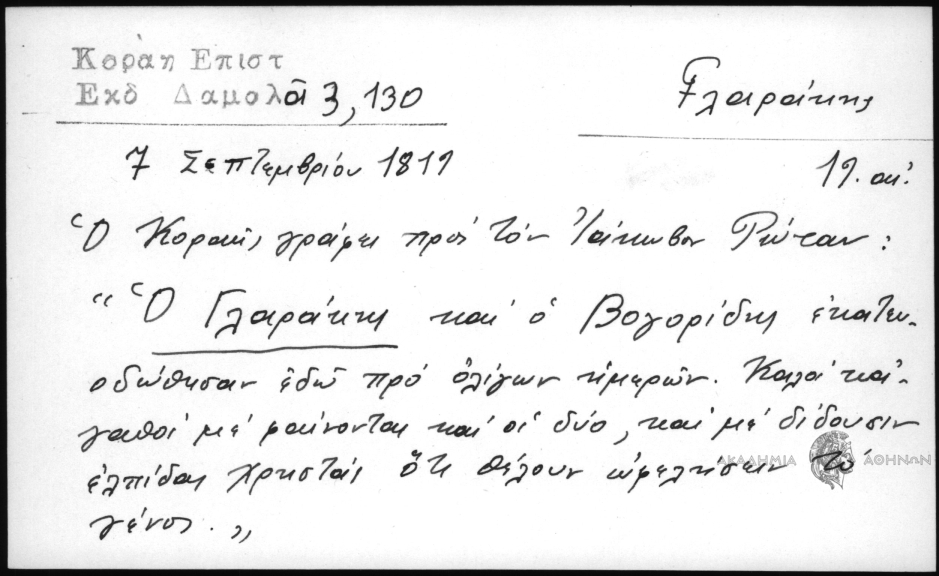 Κοραη Επιστ
Εκδ Δαμαλᾶ 3, 130
Γλαράκης
7 Σεπτεμβρίου 1819
19. αἰ.
Ὁ Κοραῆς γράφει πρὸς τὸν Ἰάκωβον Ρώταν:
"Ὁ Γλαράκης καὶ ὁ Βογορίδης ἐκατευ-
οδώθησαν ἐδῶ πρὸ ὀλίγων ἡμερῶν. Καλοὶ κἀ-
γαθοὶ μὲ φαίνονται καὶ οἱ δύο, καὶ μὲ δίδουσιν
ἐλπίδας χρηστὰς ὅτι θέλουν ὠφελήσειν τὸ
γένος."
ΑΚΑΔΗΜΙΑ ΑΘΗΝΩΝ